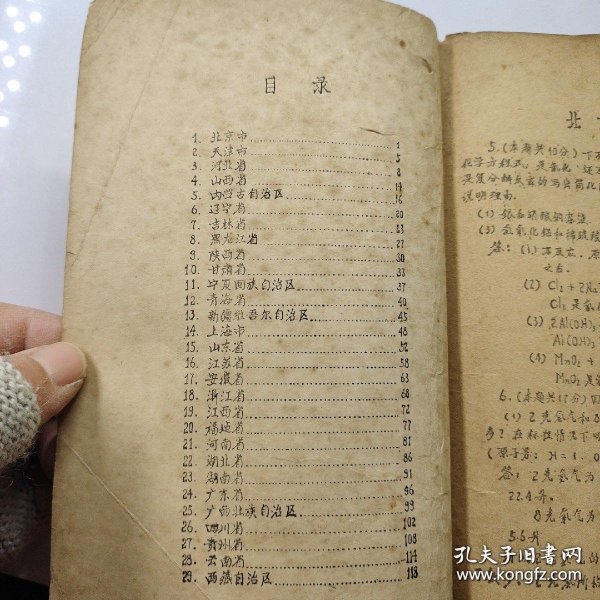 目录
1. 北京市 1
2. 天津市 5
3. 河北省 8
4. 山西省 14
5 内蒙古自治区 16
6. 辽宁省 20
7. 吉林省 23
8. 黑龙江省 27
9. 陕西省 30
10. 甘肃省 33
11. 宁夏回族自治区 37
12. 青海省 40
13. 新疆维吾尔自治区 45
14. 上海市 48
15. 山东省 52
16. 江苏省 58
17. 安徽省 63
18. 浙江省 68
19. 江西省 72
20. 福建省 77
21. 河南省 81
22. 湖北省 86
23. 湖南省 91
24. 广东省 96
25. 广西壮族自治区 99
26. 四川省 102
27. 贵州省 108
28. 云南省 114
29. 西藏自治区 118
北
5. (本题共10分) 下
化学方程式,是氧化
是复分解反应的写出简化
说明理由。
(1)
(3) 氢氧化铝和稀硫酸
答: (1) 不反应.
之后.
(2) Cl₂ + 2
Cl₂ 是氧
(3) 2Al(OH)₃
Al(OH)₃
(4) MnO₂ +
MnO₂ 是氧
6. (本题共17分)
(1) 2克氢气和8
多? 在标准情况下
(原子量: H = 1. O
答: 2克氢气为
22.4升.
8克氧气为
5.6升
孔夫子旧书网
www.kongfz.com